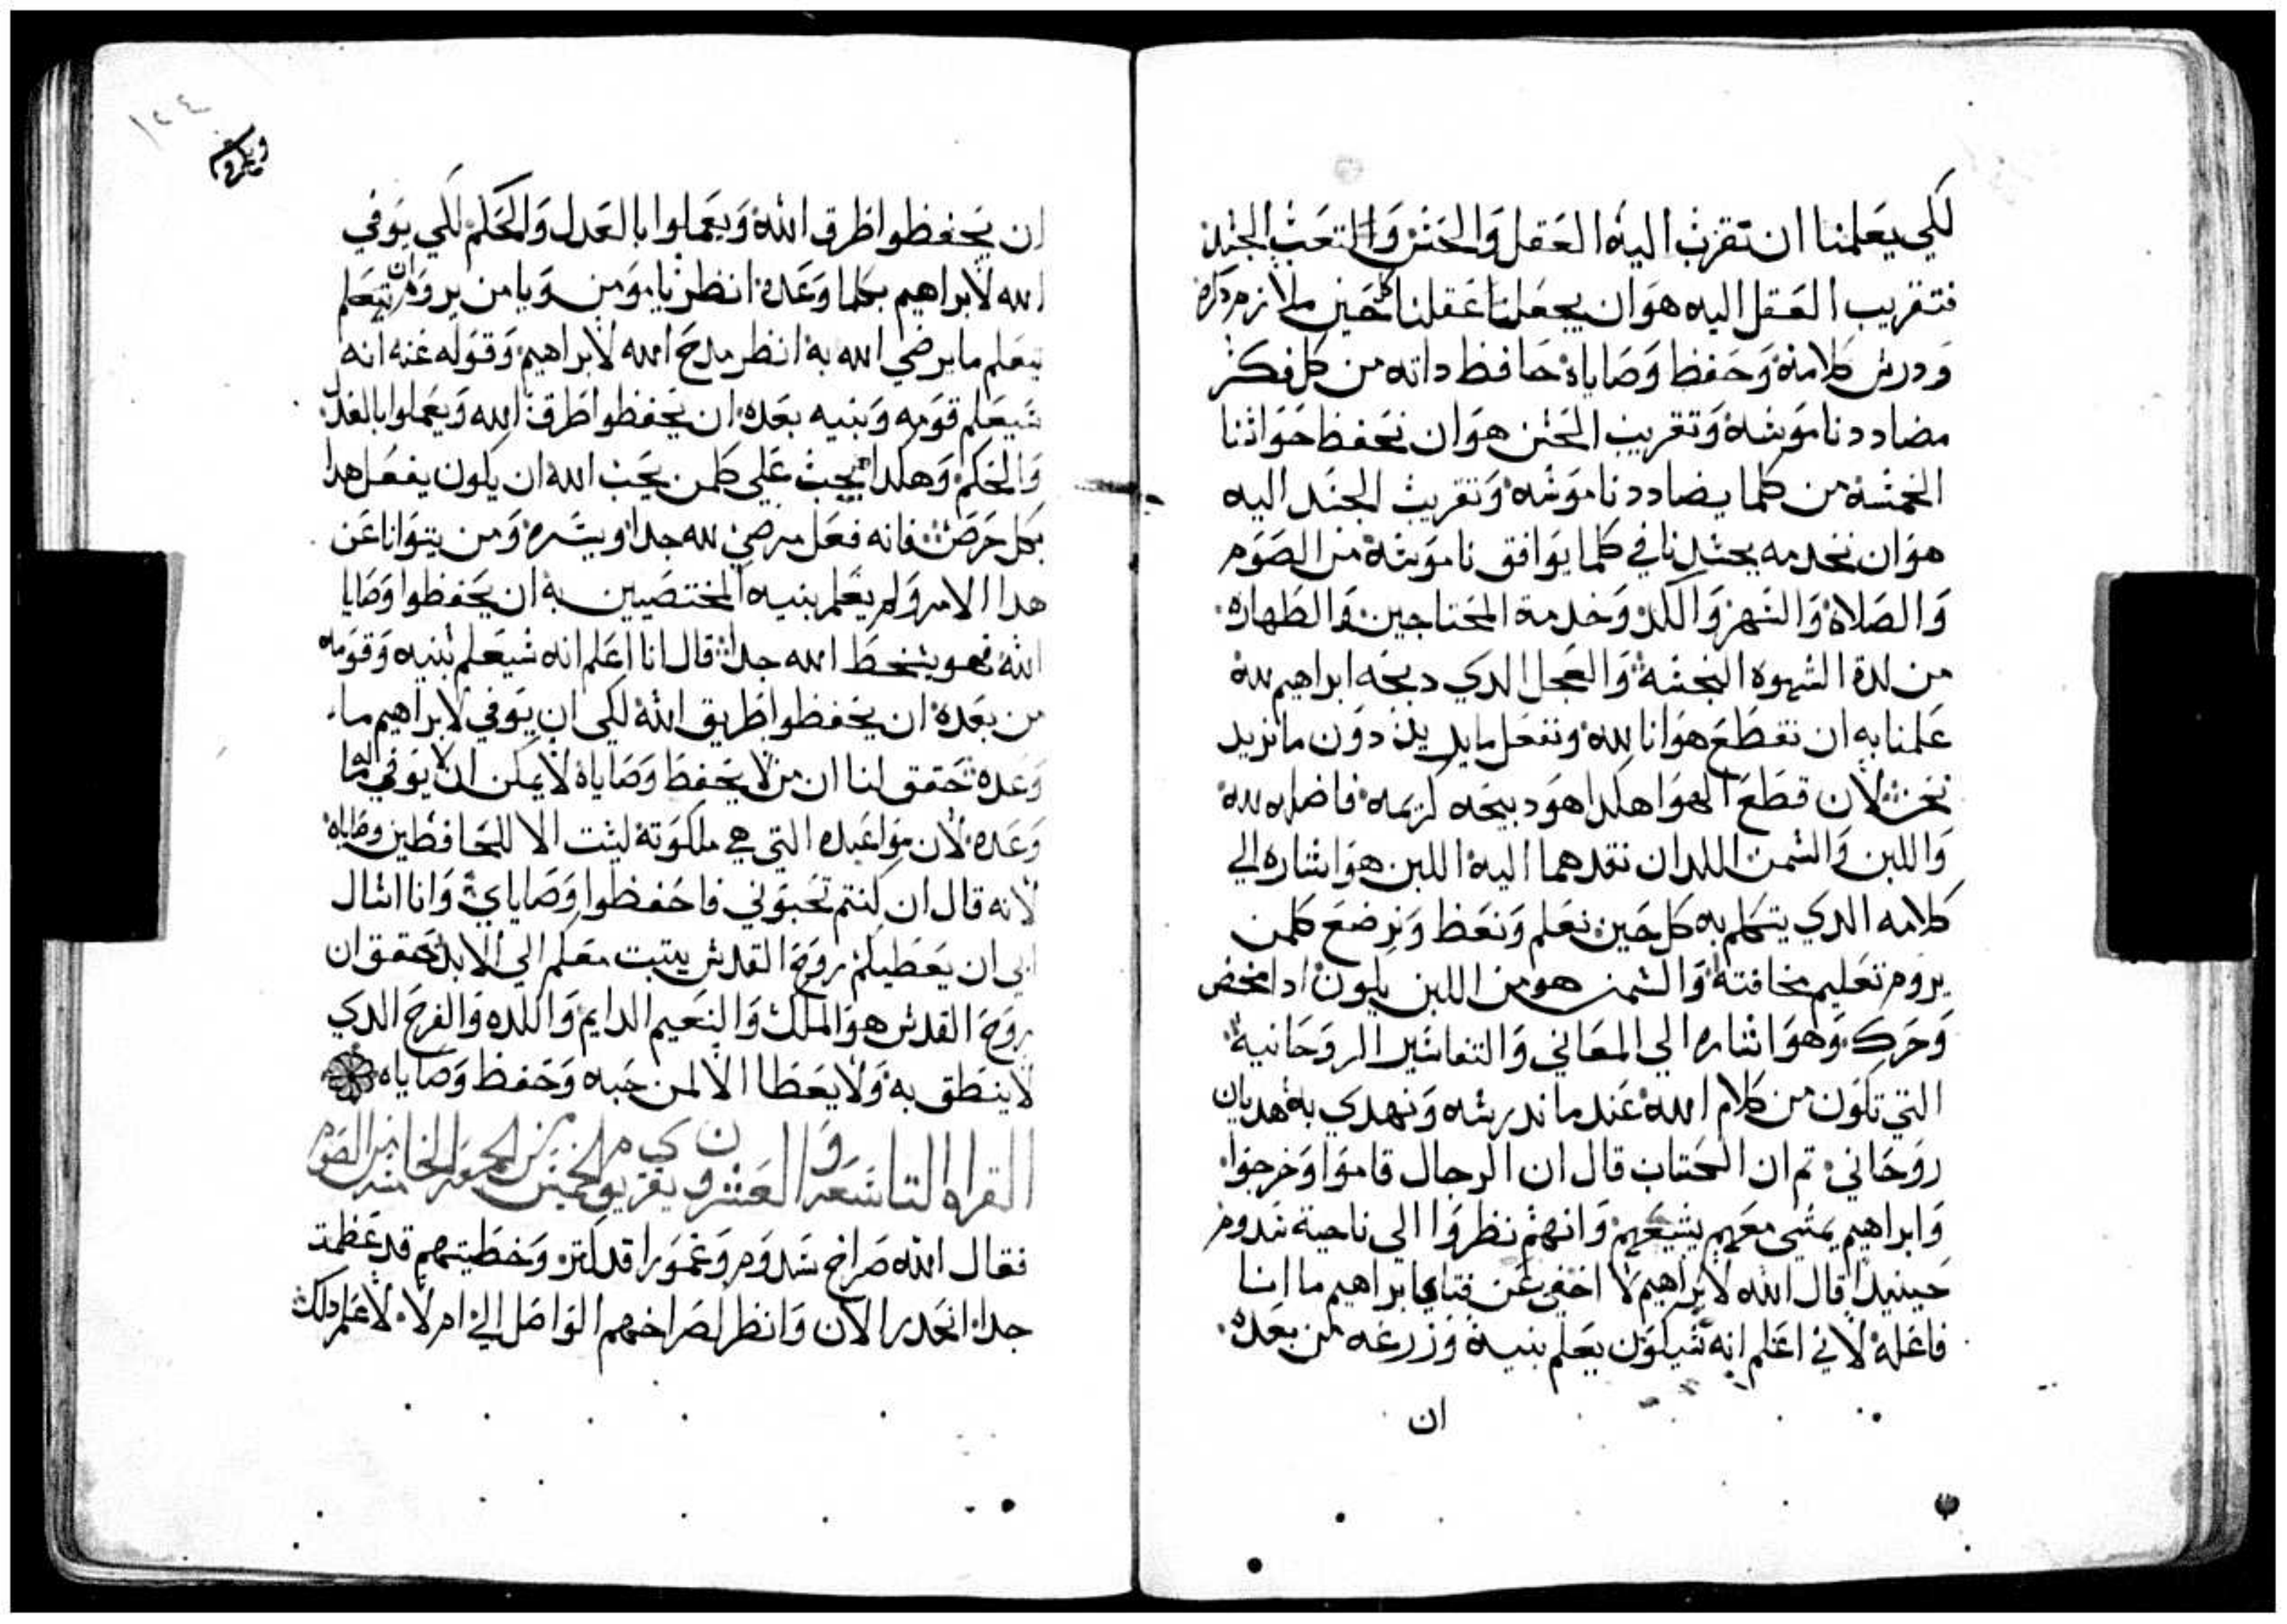 لكي يعلمنا ان تقرب اليه العقل والحس والتعب الجسد
فتقريب العقل اليه هو ان يجعلنا عقلنا كل حين ملازم ذكره
ودرس كلامه وحفظ وصاياه حافظ داته من كل فكر
مضادد ناموسه وتقريب الحس هو ان نحفظ حواسنا
الخمسه من كلما يضادد ناموسه وتقريب الجسد اليه
هو ان نخدمه بجسدنا في كلما يوافق ناموسه من الصوم
والصلاه والسهر والكد وخدمة المحتاجين والطهاره
من لدة الشهوه النجسه والعجل الدي دبحه ابراهيم لله
علمنا به ان نقطع هوانا لله ونفعل ما يريد دون ما نريد
نحن لان قطع الهوا هكدا هو دبيحه كريمه فاضله لله
واللبن والسمن اللدان نقدهما اليه اللبن هو اشاره الي
كلامه الدي يتكلم به كل حين نعلم ونعظ ونرضع كلمن
يروم تعليم مخافته والسمن هو من اللبن يكون ادا مخض
وحرك وهو اشاره الي المعاني والتفاسير الروحانية
التي تكون من كلام الله عند ما ندرسه ونهدي به هديان
روحاني تم ان الكتاب قال ان الرجال قاموا وخرجوا
وابراهيم يمشي معهم يشيعهم وانهم نظروا الي ناحية سدوم
حينيدا قال الله لابراهيم لا اخفي عن فتاي ابراهيم ما انا
فاعله لاني اعلم انه سيكون يعلم بنيه وزرعه من بعده
ان
ان يحفظوا طرق الله ويعملوا بالعدل والحكم لكي يوفي
الله لابراهيم بكلما وعده انظر يا مومن ويا من يروم ان يتعلم
تعلم ما يرضي الله به انظر مدح الله لابراهيم وقوله عنه انه
سيعلم قومه وبنيه بعده ان يحفظوا طرق الله ويعملوا بالعدل
والحكم وهكدا يجب علي كلمن يحب الله ان يكون يفعل هدا
بكل حرص فانه فعل مرضي لله جدا ويسره ومن يتوانا عن
هدا الامر ولم يعلم بنيه المختصين به ان يحفظوا وصايا
الله فهو يسخط الله جدا قال انا اعلم انه سيعلم بنيه وقومه
من بعده ان يحفظوا طريق الله لكي ان يوفي لابراهيم ما
وعده تحقق لنا ان من لا يحفظ وصاياه لا يمكن ان يوفي له ما
وعده لان مواعيده التي هي ملكوته ليست الا للحافظين وصاياه
لانه قال ان كنتم تحبوني فاحفظوا وصاياي وانا اسال
ابي ان يعطيكم روح القدس يتبت معكم الي الابد تحقق ان
روح القدس هو الملك والنعيم الدايم واللده والفرح الدي
لا ينطق به ولا يعطا الا لمن حبه وحفظ وصاياه
القراه التاسعه والعشرون يقري يوم الخميس من الجمعه الخامسه من الصوم
فقال الله صراخ سدوم وغمورا قد كتر وخطيتهم قد عظمت
جدا انحدر الان وانظر لصراخهم الواصل الي ام لا لاعلم دلك